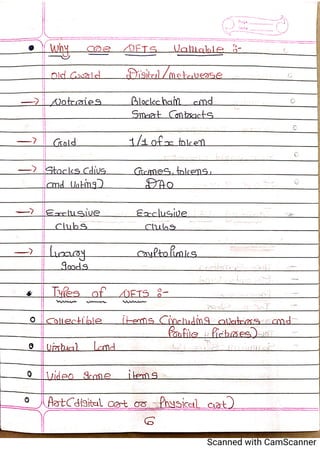 Why are NFTS Valuable :-
Old World Digital/metaverse
→ Notaries Blockchain and
Smart Contracts
→ Gold 1/1 of x token
→ Stocks (divs. Games, tokens,
and Voting) DAO
→ Exclusive Exclusive
clubs clubs
→ Luxury cryptopunks
goods
Types of NFTS :-
Collectible items (including avatars and
Profile Pictures)
Virtual Land
Video Game items
Art (digital art or Physical art)
6
Scanned with CamScanner